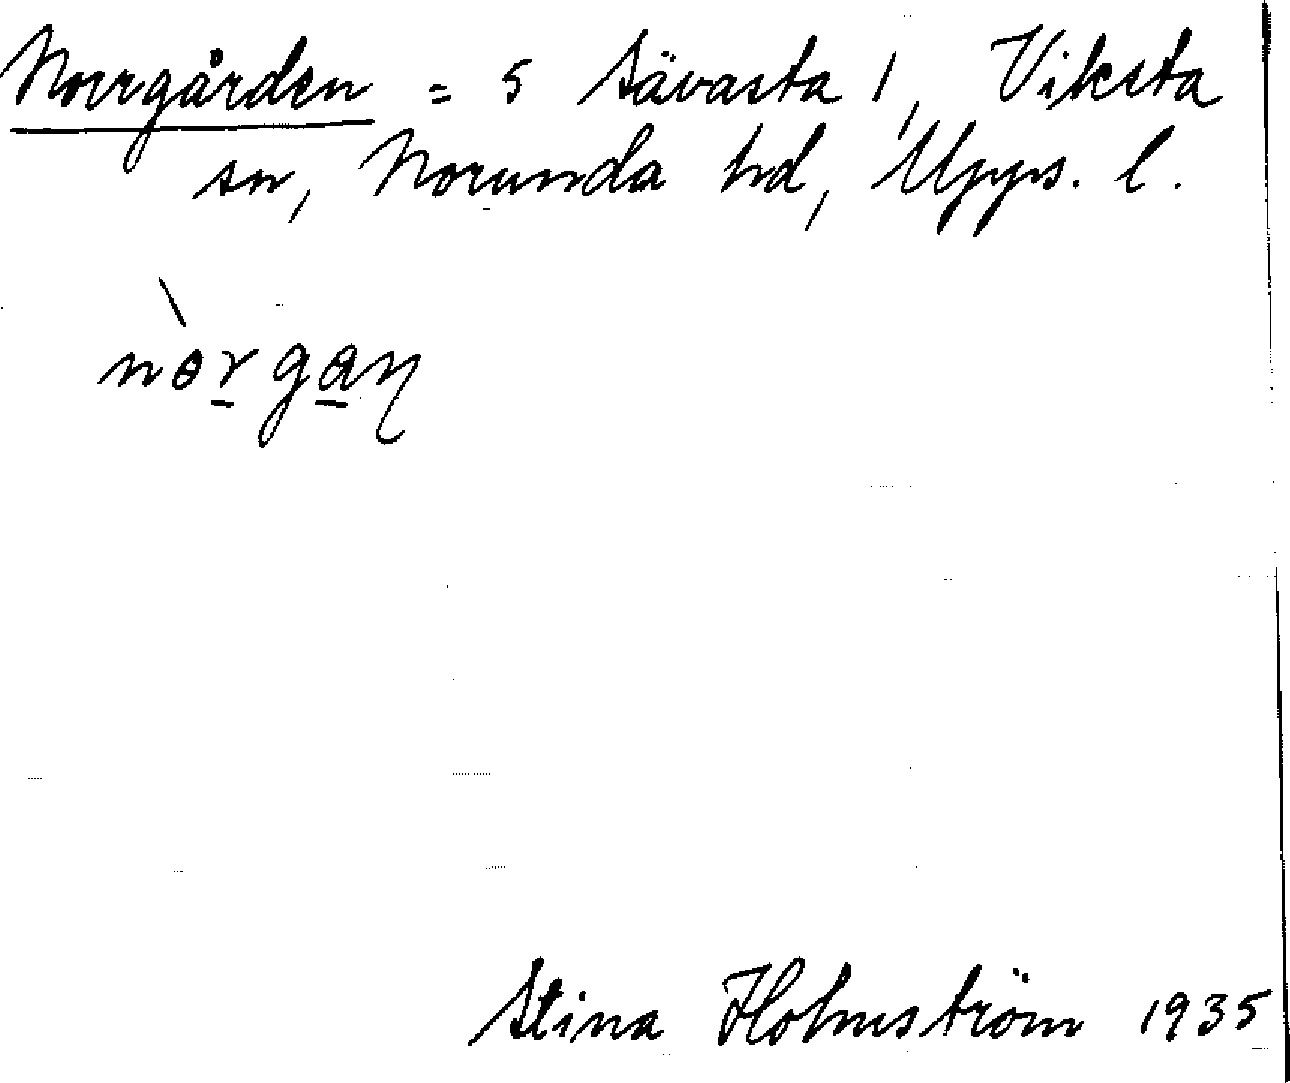 Norrgården = 5 Sävasta 1, Viksta
sn, Norunda hd, Upps. l.
nɵ̀rgaɳ
Stina Holmström 1935